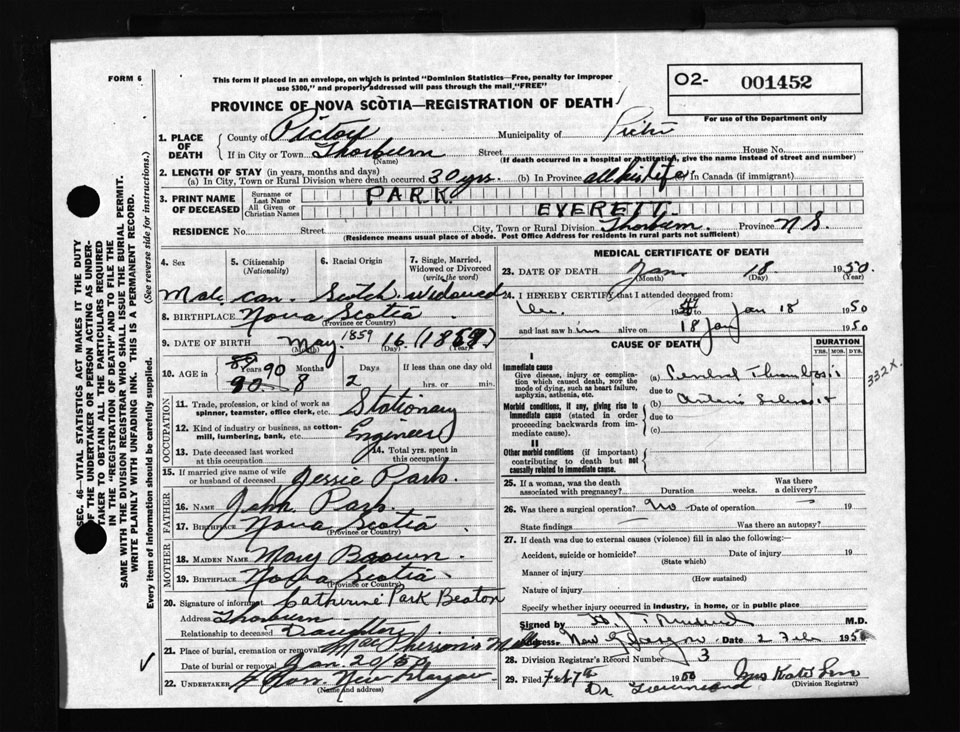 FORM 6
This form if placed in an envelope, on which is printed "Dominion Statistics—Free, penalty for improper
use $300," and properly addressed will pass through the mail, "FREE"
PROVINCE OF NOVA SCOTIA—REGISTRATION OF DEATH
O2- 001452
For use of the Department only
SEC. 46—VITAL STATISTICS ACT MAKES IT THE DUTY
OF THE UNDERTAKER OR PERSON ACTING AS UNDER-
TAKER TO OBTAIN ALL THE PARTICULARS REQUIRED
IN THE "REGISTRATION OF DEATH" AND TO FILE THE
SAME WITH THE DIVISION REGISTRAR WHO SHALL ISSUE THE BURIAL PERMIT.
WRITE PLAINLY WITH UNFADING INK. THIS IS A PERMANENT RECORD.
Every item of information should be carefully supplied. (See reverse side for instructions.)
1. PLACE OF DEATH
County of Pictou Municipality of Pictou
If in City or Town Thorburn Street House No.
(Name) (If death occurred in a hospital or institution, give the name instead of street and number)
2. LENGTH OF STAY (in years, months and days)
(a) In City, Town or Rural Division where death occurred 30 yrs. (b) In Province all his life (c) In Canada (if immigrant)
3. PRINT NAME OF DECEASED
Surname or Last Name PARK.
All Given or Christian Names EVERETT.
RESIDENCE No. Street City, Town or Rural Division Thorburn Province N.S.
(Residence means usual place of abode. Post Office Address for residents in rural parts not sufficient)
4. Sex 5. Citizenship (Nationality) 6. Racial Origin 7. Single, Married, Widowed or Divorced (write the word)
Male can. Scotch. Widowed
8. BIRTHPLACE Nova Scotia
(Province or Country)
9. DATE OF BIRTH May 1859 16 (1859)
(Month) (Day) (Year)
10. AGE in Years Months Days If less than one day old
89 90
90 8 2 hrs. or min.
OCCUPATION
11. Trade, profession, or kind of work as spinner, teamster, office clerk, etc. Stationary
12. Kind of industry or business, as cotton-mill, lumbering, bank, etc. Engineer
13. Date deceased last worked at this occupation 14. Total yrs. spent in this occupation
15. If married give name of wife or husband of deceased Jessie Park.
FATHER
16. Name John Park.
17. Birthplace Nova Scotia
(Province or Country)
MOTHER
18. MAIDEN NAME Mary Brown.
19. BIRTHPLACE Nova Scotia.
(Province or Country)
20. Signature of informant Catherine Park Beaton
Address Thorburn
Relationship to deceased Daughter.
21. Place of burial, cremation or removal MacPherson's Mills
Date of burial or removal Jan. 20/50
22. UNDERTAKER New Glasgow
(Name and address)
MEDICAL CERTIFICATE OF DEATH
23. DATE OF DEATH Jan. 18 1950.
(Month) (Day) (Year)
24. I HEREBY CERTIFY that I attended deceased from:
Dec. 1949 to Jan 18 1950
and last saw him alive on 18 Jan 1950
CAUSE OF DEATH DURATION
YRS. MOS. DYS.
I
Immediate cause
Give disease, injury or complication which caused death, NOT the mode of dying, such as heart failure, asphyxia, asthenia, etc.
(a) Cerebral Thrombosis
due to
332X
Morbid conditions, if any, giving rise to immediate cause (stated in order proceeding backwards from immediate cause).
(b) Arterio Sclerosis
due to
(c)
II
Other morbid conditions (if important) contributing to death but not causally related to immediate cause.
25. If a woman, was the death associated with pregnancy? Duration weeks. Was there a delivery?
26. Was there a surgical operation? no Date of operation 19
State findings Was there an autopsy?
27. If death was due to external causes (violence) fill in also the following:
Accident, suicide or homicide? Date of injury 19
(State which)
Manner of injury
(How sustained)
Nature of injury
Specify whether injury occurred in industry, in home, or in public place
Signed by M.D.
Address New Glasgow Date 2 Feb 1950
28. Division Registrar's Record Number 3
29. Filed Feb 7th 1950 Mrs Kate
(Division Registrar)
Dr. Townsend